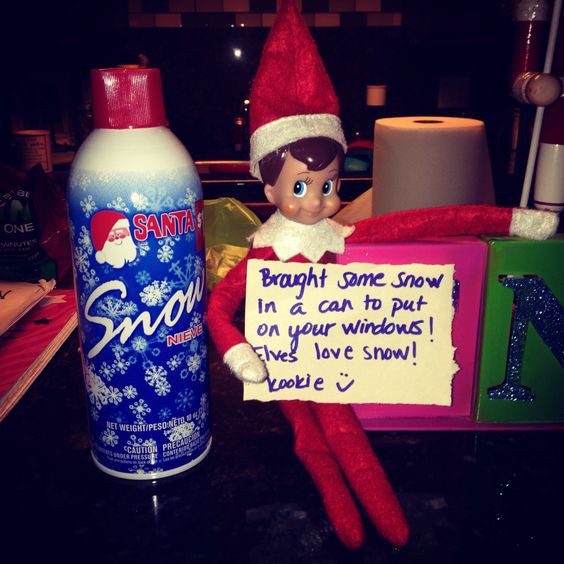 SANTA
Snow
NIEVE
NET WEIGHT/PESO NETO
CAUTION
UNDER PRESSURE
Brought some snow
in a can to put
on your windows!
Elves love snow!
Kookie
ONE
MINUTES
N